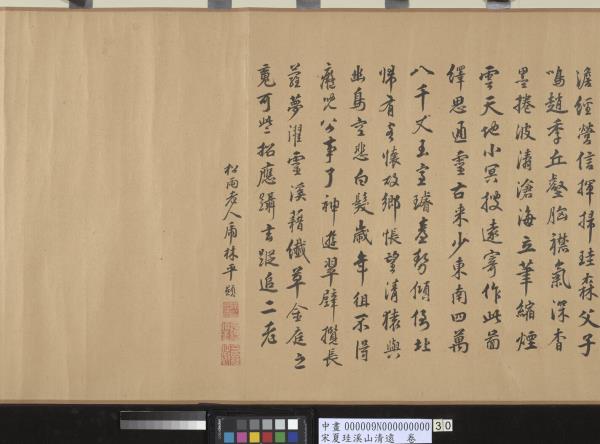 澹經營信揮掃珪森父子
鳴趙季丘壑胸襟氣深杳
墨捲波濤滄海立筆縮煙
雲天地小冥搜遠寄作此啚
繹思通靈古來少東南四萬
八千丈玉室璿臺勢傾倒北
歸有客懷故鄉悵望清猿與
幽鳥空悲白髮歲年徂不得
癡兒公事了神遊翠壁攬長
蘿夢濯靈溪藉纖草金庭之
竟可些招應躡玄蹤追二老
松雨老人虎林平顯
中畫 000009N000000000 30
宋夏珪溪山清遠 卷